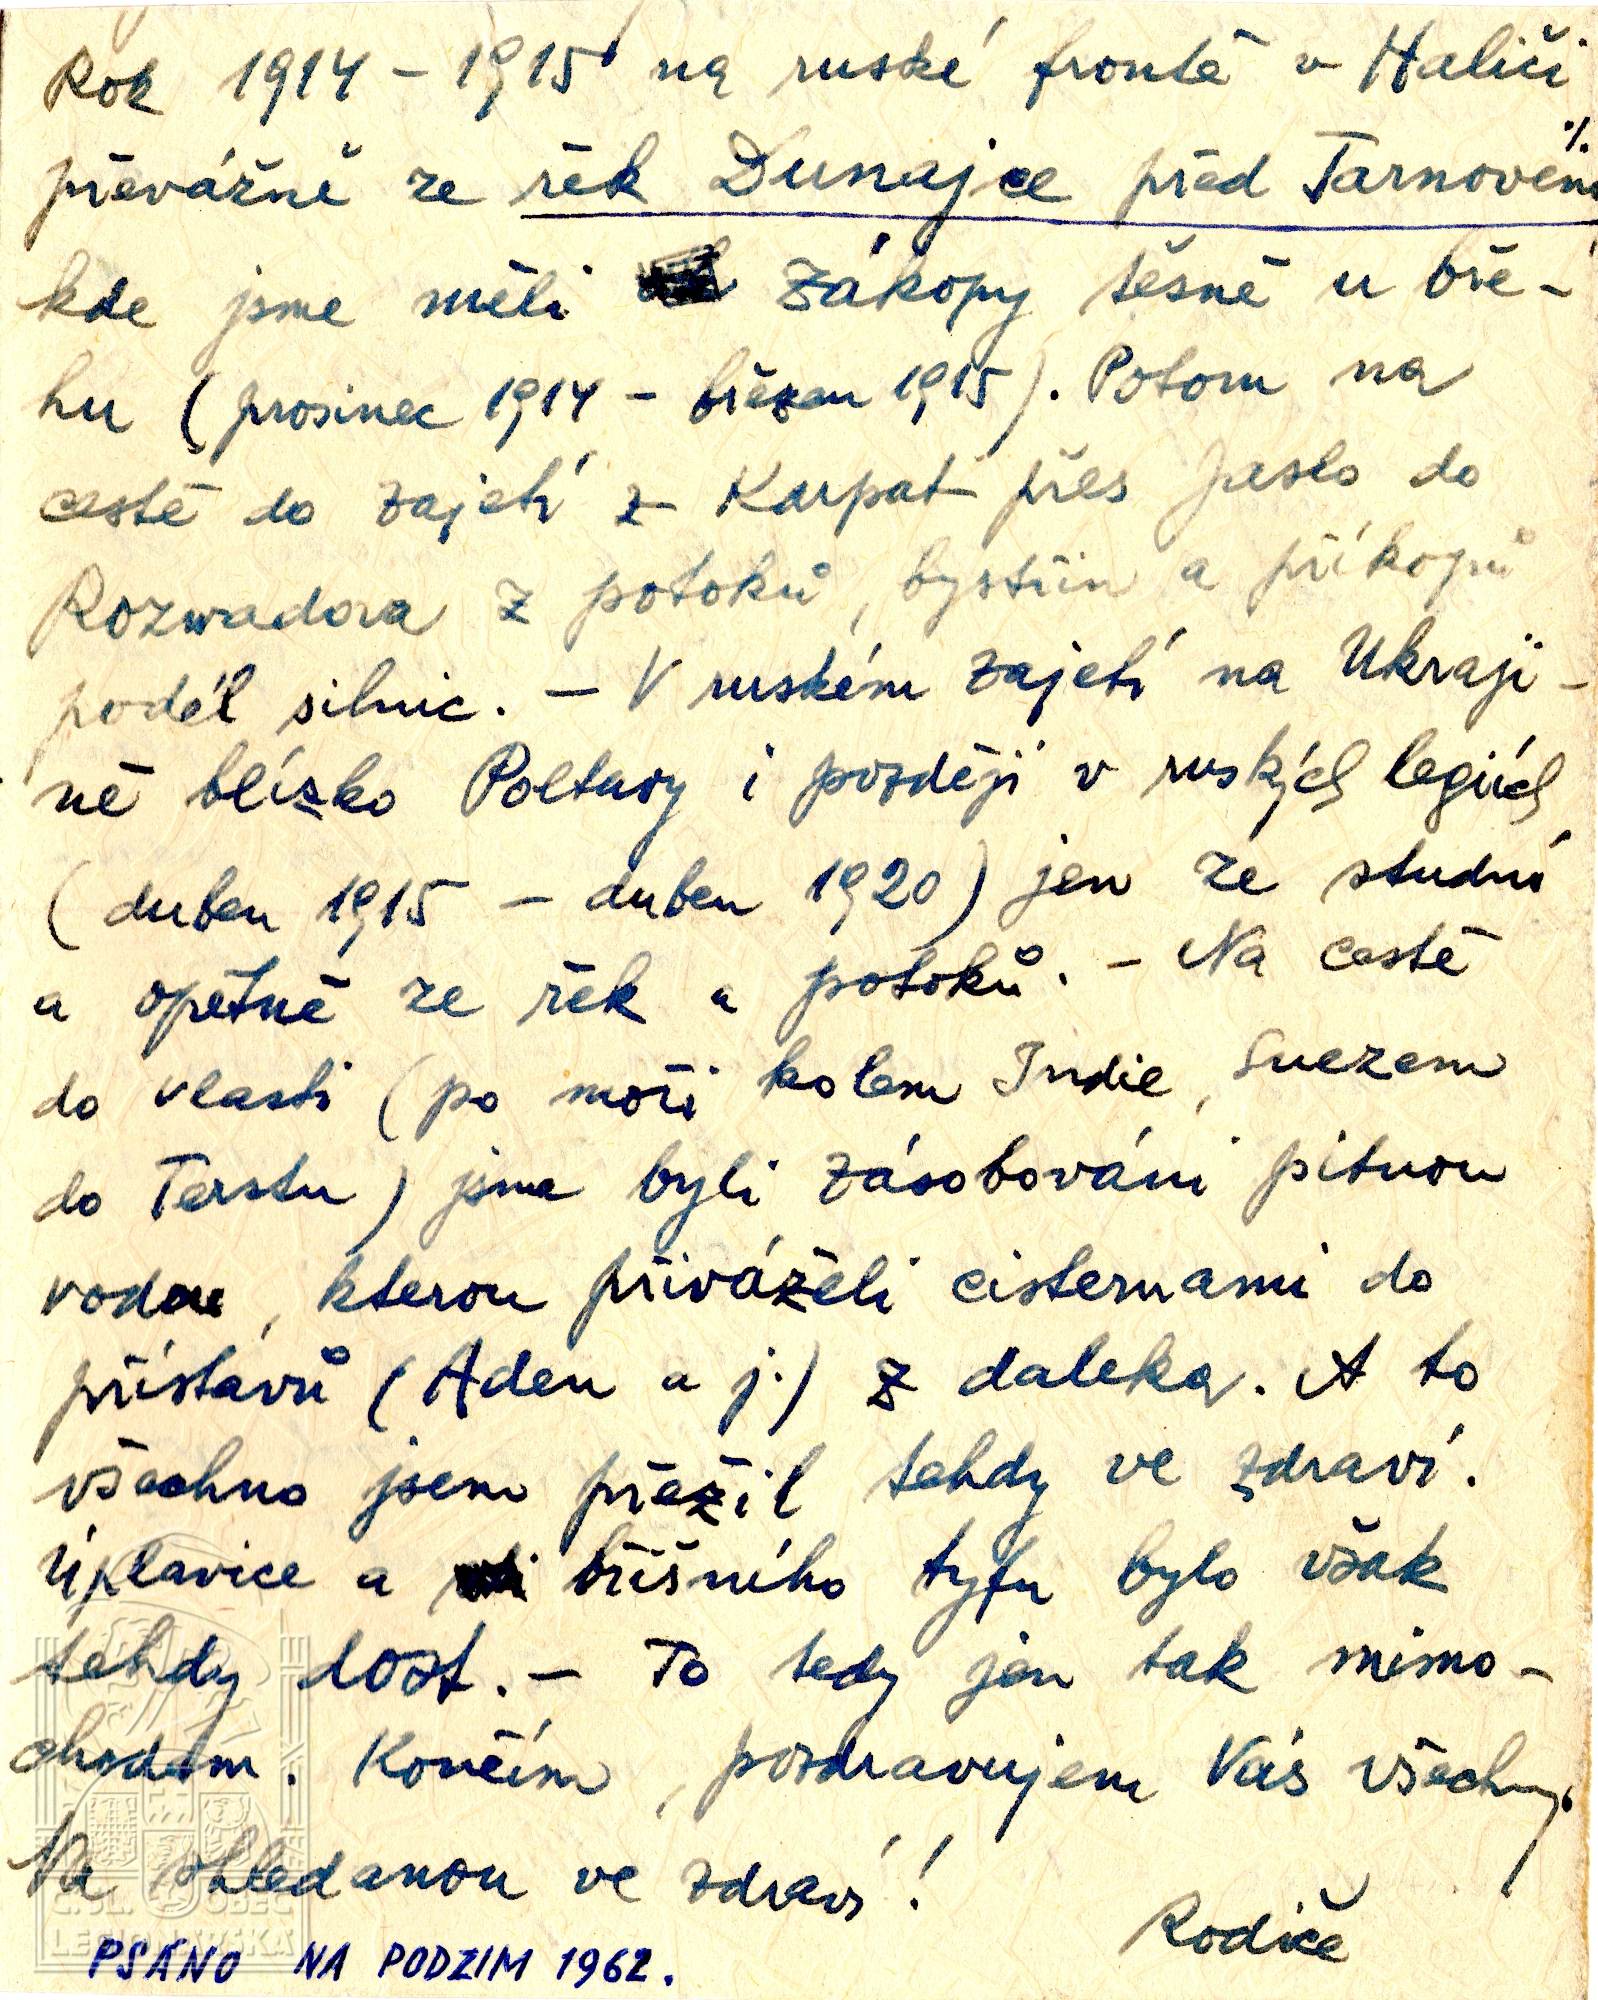 Rok 1914 – 1915 na ruské frontě v Haliči
převážně ze řek Dunajce před Tarnovem ·/.
kde jsme měli zákopy těsně u bře-
hu (prosinec 1914 – březen 1915). Potom na
cestě do zajetí z Karpat přes Jaslo do
Rozwadova z potoků, bystřin a příkopů
podél silnic. – V ruském zajetí na Ukraji-
ně blízko Poltavy i později v ruských legiích
(duben 1915 – duben 1920) jen ze studní
a opětně ze řek a potoků. – Na cestě
do vlasti (po moři kolem Indie, Suezem
do Terstu) jsme byli zásobováni pitnou
vodou, kterou přiváželi cisternami do
přístavů (Aden a j.) z daleka. A to
všechno jsem přežil tehdy ve zdraví.
Úplavice a břišního tyfu bylo však
tehdy dost. – To tedy jen tak mimo-
chodem. Končím, pozdravujem Vás všechny.
Na shledanou ve zdraví!
Rodiče
PSÁNO NA PODZIM 1962.
Č. SL. OBEC
LEGIONÁŘSKÁ